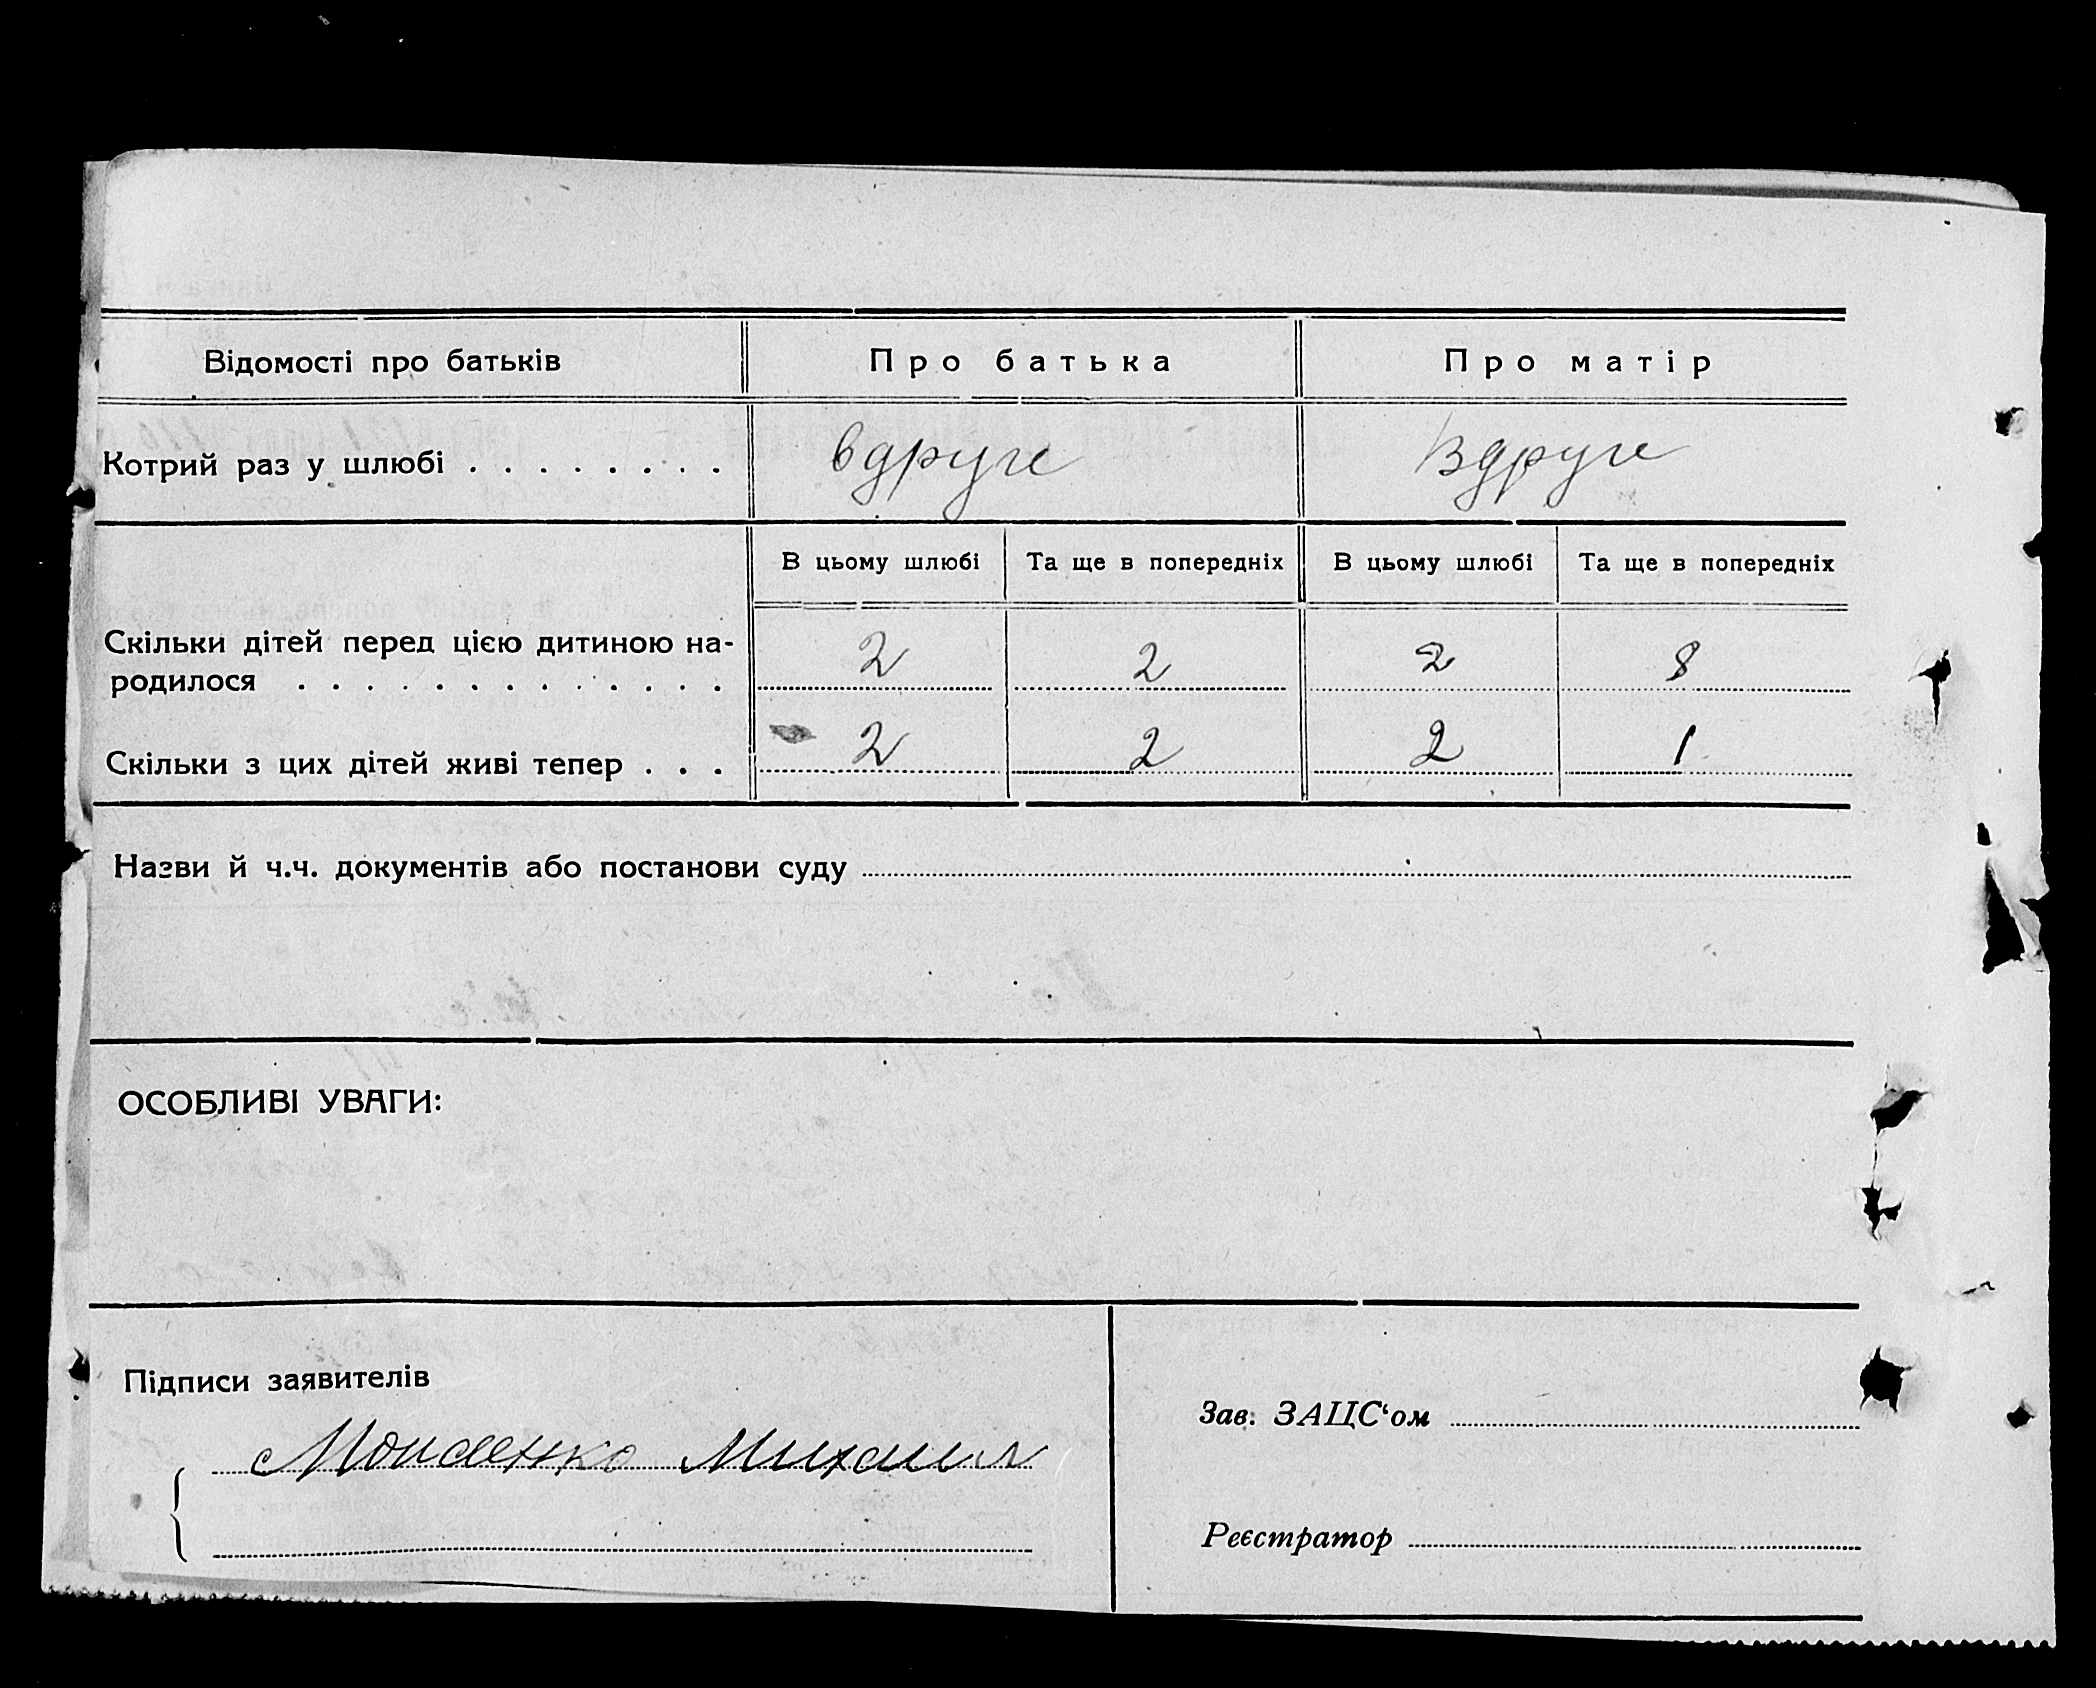 Відомості про батьків Про батька Про матір
Котрий раз у шлюбі . . . . . . . . вдруге вдруге
В цьому шлюбі Та ще в попередніх В цьому шлюбі Та ще в попередніх
Скільки дітей перед цією дитиною на-
родилося . . . . . . . . . . . . . 2 2 2 8
Скільки з цих дітей живі тепер . . . 2 2 2 1
Назви й ч.ч. документів або постанови суду
ОСОБЛИВІ УВАГИ:
Підписи заявителів
Моисеенко Михаил
Зав. ЗАЦС‘ом
Реєстратор